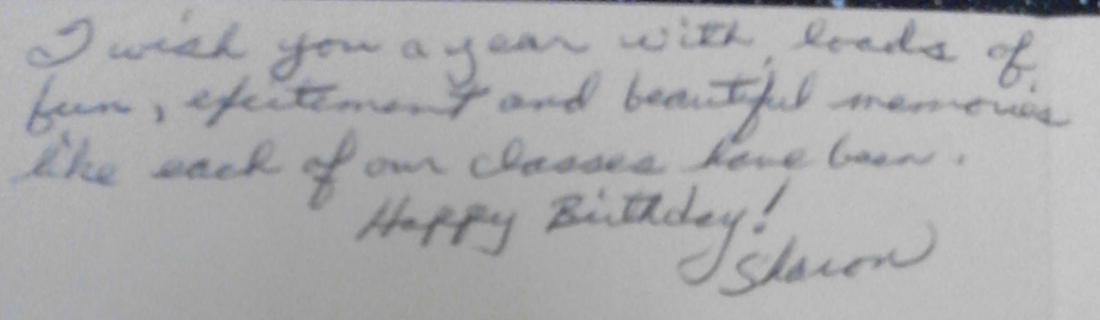 I wish you a year with loads of
fun, excitement and beautiful memories
like each of our classes have been.
Happy Birthday!
Sharon